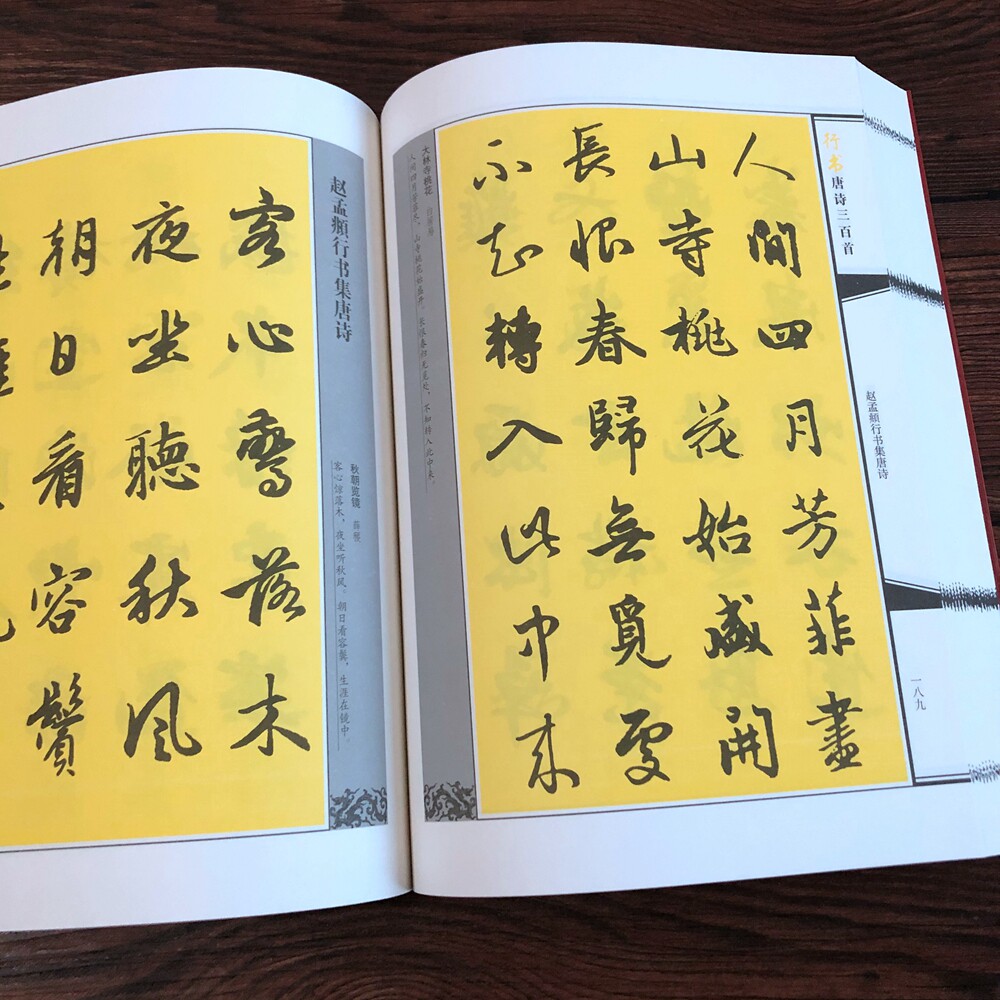 赵孟頫行书集唐诗
秋朝览镜 薛稷
客心惊落木，夜坐听秋风。朝日看容鬓，生涯在镜中。
客心驚落木
夜坐聽秋風
朝日看容鬢
行书唐诗三百首
赵孟頫行书集唐诗
一八九
人間四月芳菲盡
山寺桃花始盛開
長恨春歸無覓處
不知轉入此中來
大林寺桃花 白居易
人间四月芳菲尽，山寺桃花始盛开。长恨春归无觅处，不知转入此中来。